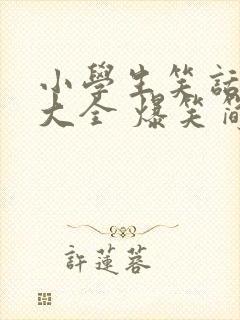 小學生笑話
大全 爆笑
許蓮蓉